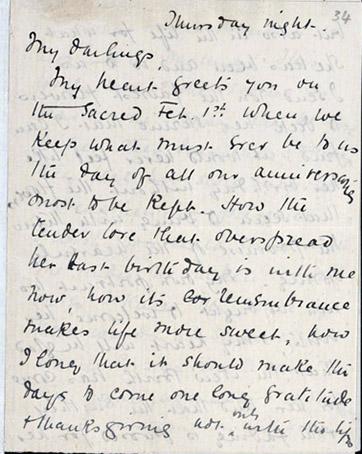 34
Thursday night
My darlings
My heart greets you on
the Sacred Feb. 1st. When we
keep what must ever be to us
the day of all our anniversaries
most to be kept. How the
tender love that overspread
her last birthday is with me
now, how its remembrance
makes life more sweet, how
I long that it should make the
days to come one long gratitude
& thanksgiving not only with the lips